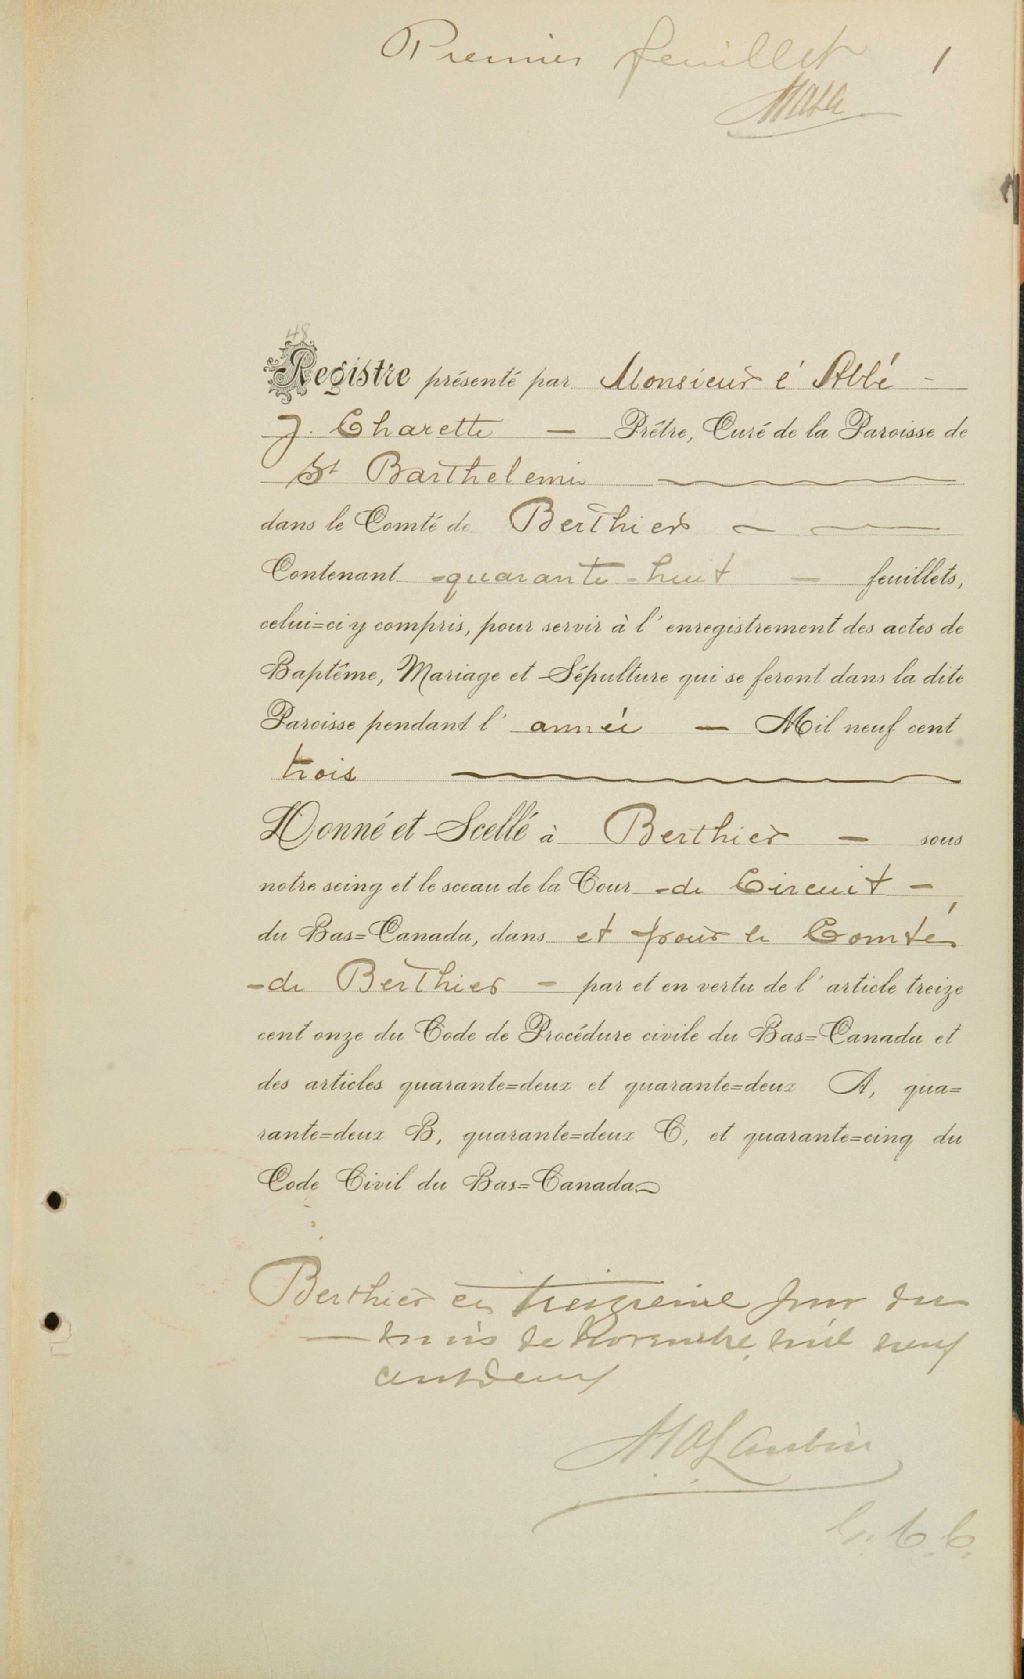 Premier feuillet 1
48
Registre présenté par Monsieur l'Abbé -
J. Charette — Prêtre, Curé de la Paroisse de
St Barthelemi
dans le Comté de Berthier
Contenant quarante-huit — feuillets,
celui=ci y compris, pour servir à l'enregistrement des actes de
Baptême, Mariage et Sépulture qui se feront dans la dite
Paroisse pendant l'année — Mil neuf cent
trois
Donné et Scellé à Berthier — sous
notre seing et le sceau de la Cour de Circuit -
du Bas=Canada, dans et pour le Comté
de Berthier - par et en vertu de l'article treize
cent onze du Code de Procédure civile du Bas=Canada et
des articles quarante=deux et quarante=deux A, qua=
rante=deux B, quarante=deux C, et quarante=cinq du
Code Civil du Bas=Canada
Berthier ce treizième jour du
mois de Novembre mil neuf
cent deux
C. C. C.